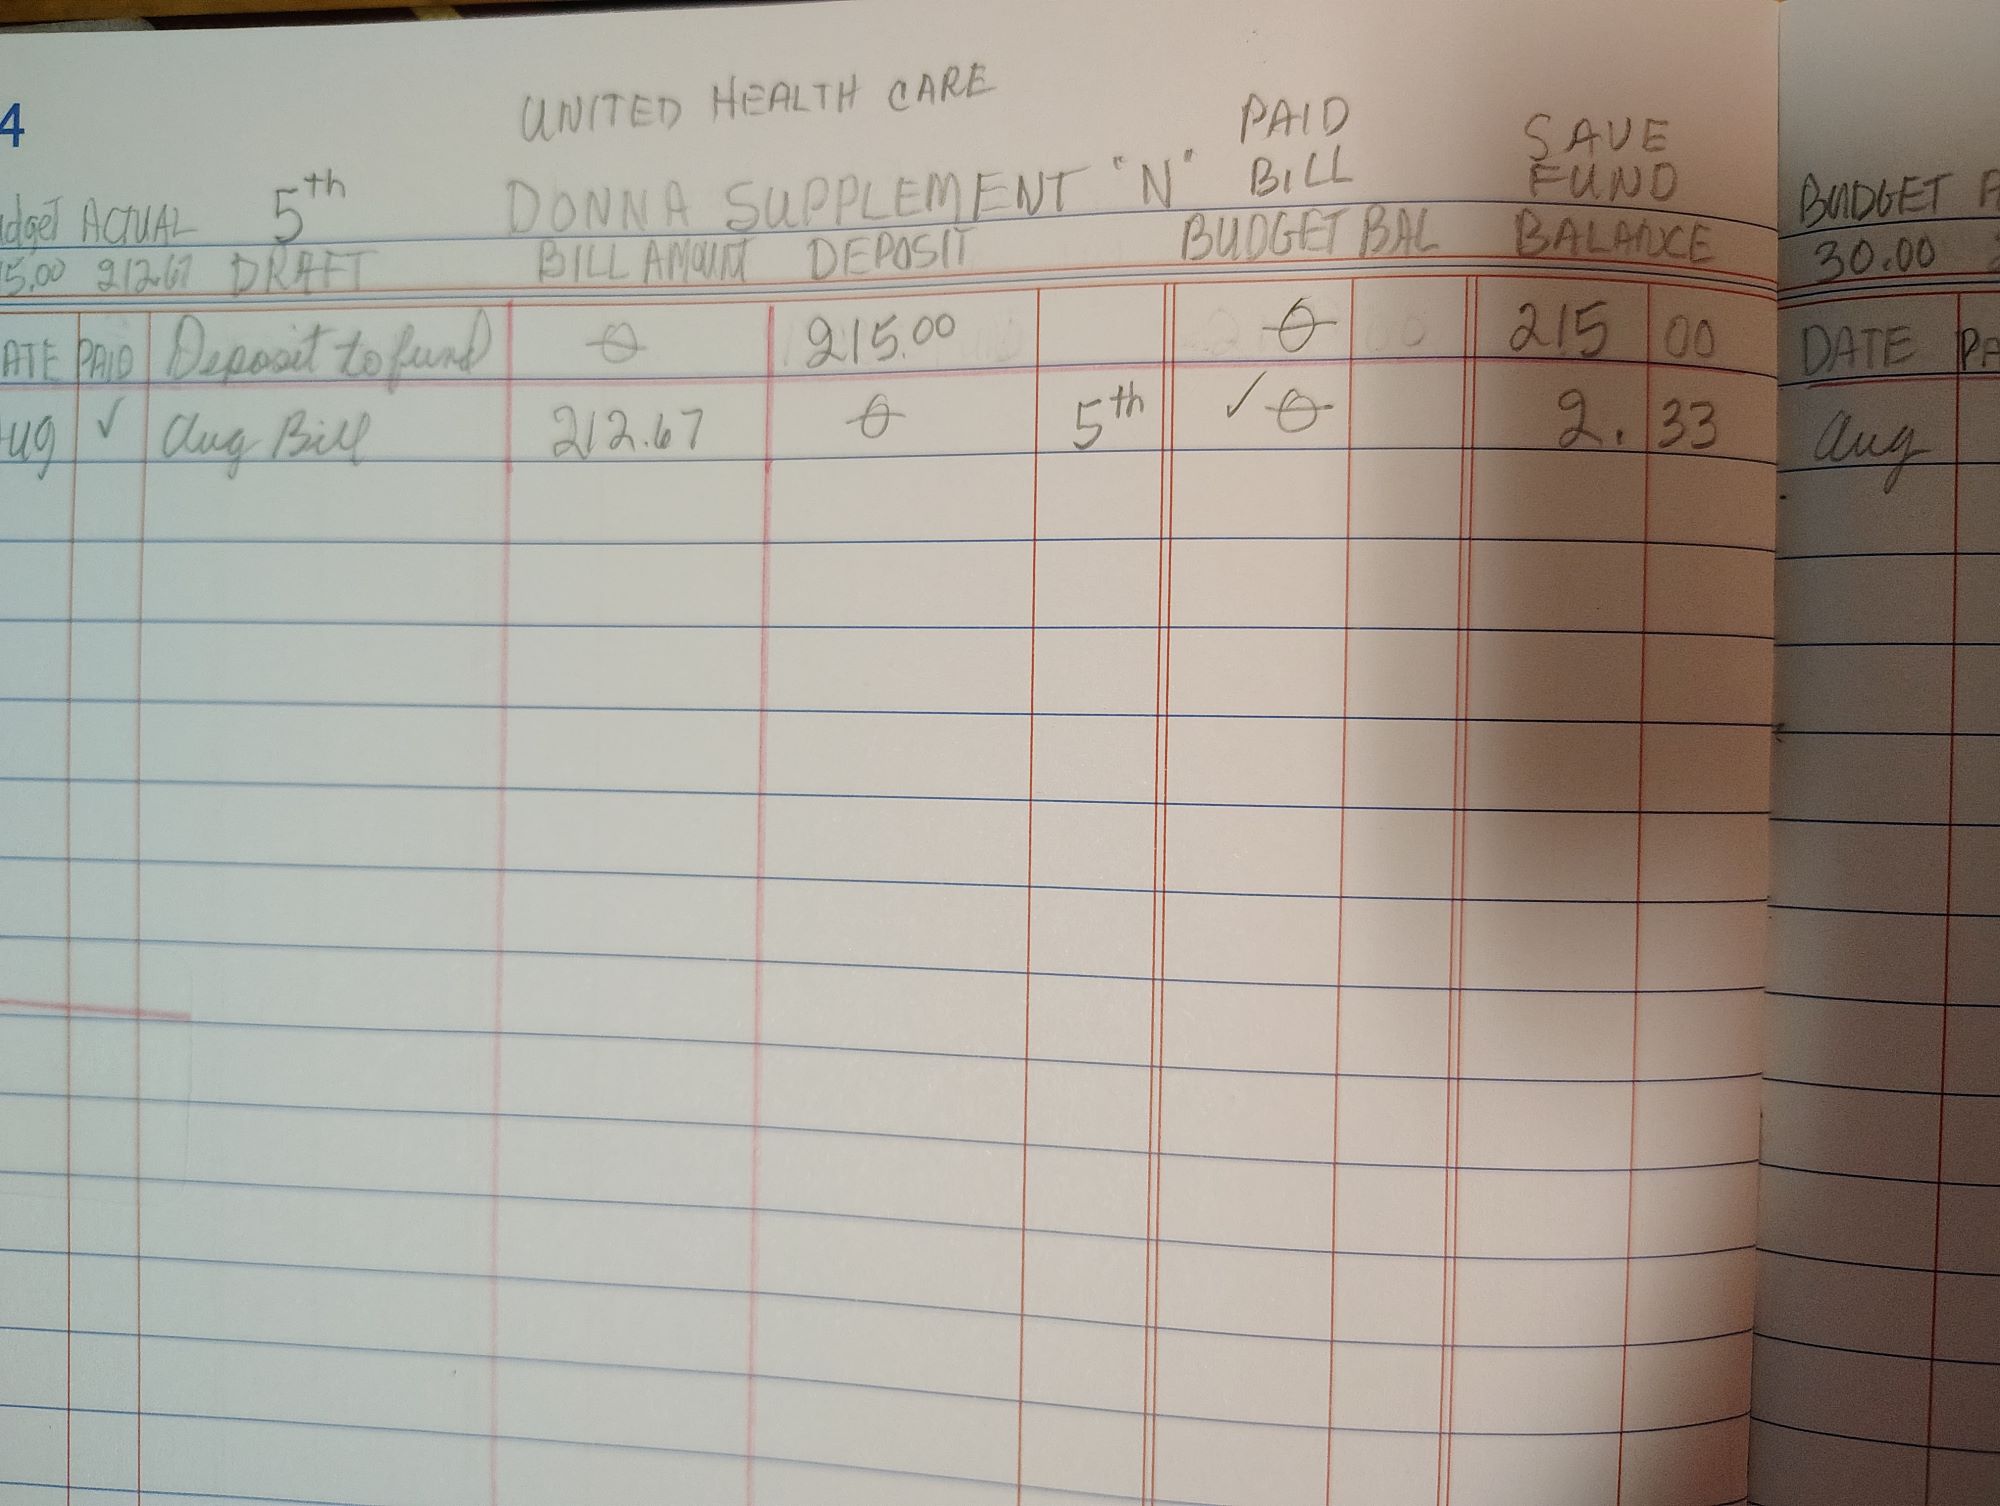 4
UNITED HEALTH CARE
PAID
SAVE
dget ACTUAL 5th DONNA SUPPLEMENT "N" BILL FUND
5.00 212.67 DRAFT BILL AMOUNT DEPOSIT BUDGET BAL BALANCE
ATE PAID Deposit to fund θ 215.00 θ 215 00
ug ✓ Aug Bill 212.67 θ 5th ✓ θ 2. 33
BUDGET
30.00
DATE PA
Aug